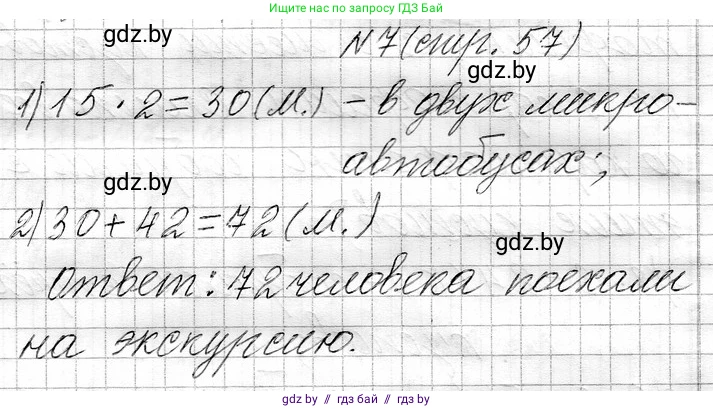 Ищите нас по запросу ГДЗ Бай
gdz.by
№7(стр. 57)
gdz.by
1) 15 · 2 = 30 (м.) – в двух микро-
автобусах;
gdz.by
2) 30 + 42 = 72 (м.)
gdz.by
Ответ: 72 человека поехали
на экскурсию.
gdz.by // гдз бай // гдз.by